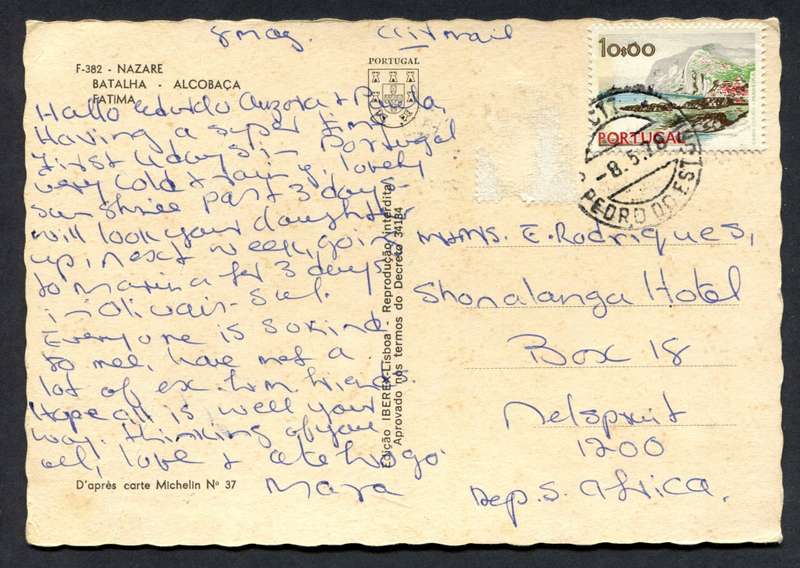 8 May. Airmail
F-382 - NAZARE
BATALHA - ALCOBAÇA
FATIMA
PORTUGAL
10$00
PORTUGAL
CTT
-8.5.78
PEDRO DO ESTORIL
Hallo Eduardo & Paula,
Having a super time
First 4 days in Portugal
very cold & rainy, lovely
sun shine past 3 days.
will look your daughter
up, next week, going
to Marina for 3 days
in Olivais-Sul.
Everyone is so kind
to me, have met a
lot of ex. friends.
Hope all is well your
way. thinking of you
all, love & ate logo.
Maya
D'après carte Michelin Nº 37
Edição IBEREX-Lisboa - Reprodução interdita
Aprovado nos termos do Decreto 34184
E. Rodriques,
Shonalanga Hotel
Box 18
Nelspruit
1200
Rep. S. Africa.